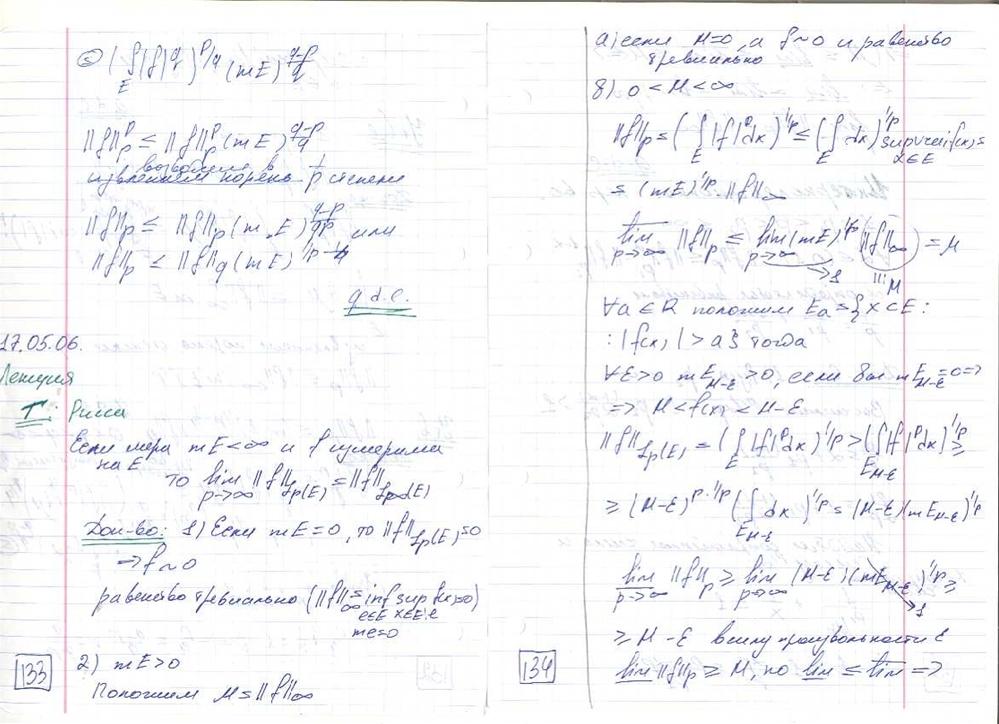 = (∫_E |f|^q)^{p/q} (mE)^{(q-p)/q}
||f||_p^p ≤ ||f||_p^p (mE)^{(q-p)/q}
извлечением корень 1/p степени
||f||_p ≤ ||f||_p (m E)^{(q-p)/qp} или
||f||_p ≤ ||f||_q (mE)^{1/p - 1/q}
q.d.e.
17.05.06.
Лекция
Т: Рисса
Если мера mE < ∞ и f измерима
на E,
то lim_{p→∞} ||f||_{Lp(E)} = ||f||_{L∞(E)}
Док-во: 1) Если mE = 0, то ||f||_{Lp(E)} = 0
⇒ f ~ 0
равенство тривиально (||f||_∞ = inf sup f(x) = 0)
e⊂E x∈E\e
me=0
2) mE > 0
Положим M = ||f||_∞
133
а) если M=0, а f~0 и равенство
тривиально
в) 0 < M < ∞
||f||_p = (∫_E |f|^p dx)^{1/p} ≤ (∫_E dx)^{1/p} supvrai f(x) =
x∈E
= (mE)^{1/p} · ||f||_∞
lim_{p→∞} ||f||_p ≤ lim_{p→∞} (mE)^{1/p} ||f||_∞ = M
→1 M
∀a ∈ R положим E_a = {x ⊂ E :
: |f(x)| > a} тогда
∀ε>0 mE_{M-ε} > 0, если бы mE_{M-ε} = 0 ⇒
⇒ M < f(x) < M-ε
||f||_{Lp(E)} = (∫_E |f|^p dx)^{1/p} > (∫_{E_{M-ε}} |f|^p dx)^{1/p} ≥
≥ (M-ε)^{p·1/p} (∫_{E_{M-ε}} dx)^{1/p} = (M-ε)(mE_{M-ε})^{1/p}
lim_{p→∞} ||f||_p ≥ lim_{p→∞} (M-ε)(mE_{M-ε})^{1/p} ≥
→1
≥ M-ε в силу произвольности ε
lim ||f||_p ≥ M, но lim ≤ lim ⇒
134